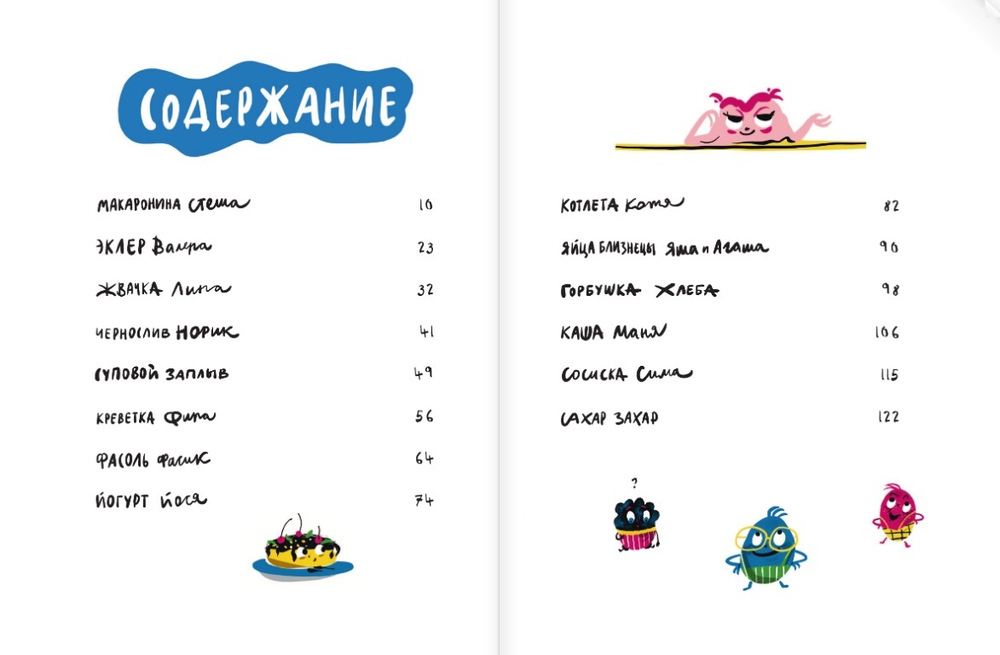 СОДЕРЖАНИЕ
МАКАРОНИНА Стеша 10
ЭКЛЕР Валера 23
ЖВАЧКА Лина 32
ЧЕРНОСЛИВ НОРИК 41
СУПОВОЙ ЗАПЛЫВ 49
КРЕВЕТКА Фира 56
ФАСОЛЬ Фасик 64
ЙОГУРТ Йося 74
КОТЛЕТА Котя 82
ЯЙЦА БЛИЗНЕЦЫ Яша и Агаша 90
ГОРБУШКА ХЛЕБА 98
КАША Маня 106
СОСИСКА Сима 115
САХАР ЗАХАР 122
?